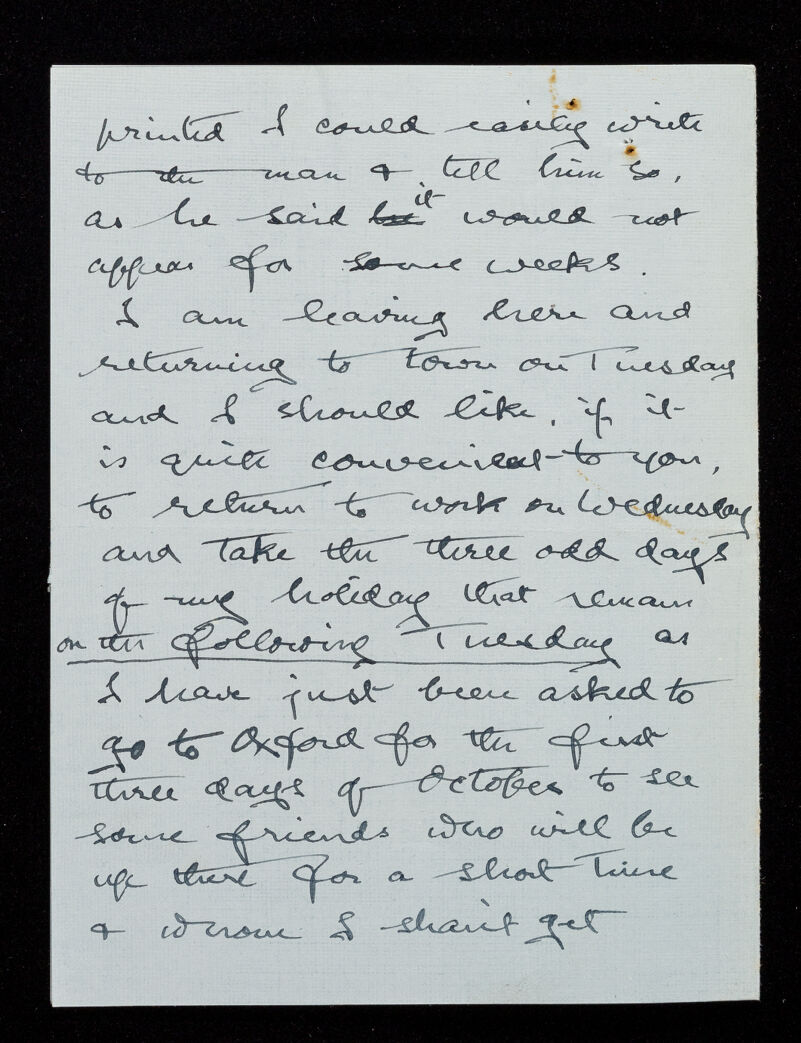 printed I could easily write
to the man & tell him so,
as he said it would not
appear for some weeks.
I am leaving here and
returning to town on Tuesday
and I should like, if it
is quite convenient to you,
to return to work on Wednesday
and take the three odd days
of my holiday that remain
on the following Tuesday as
I have just been asked to
go to Oxford for the first
three days of October to see
some friends who will be
up there for a short time
& whom I shan't get